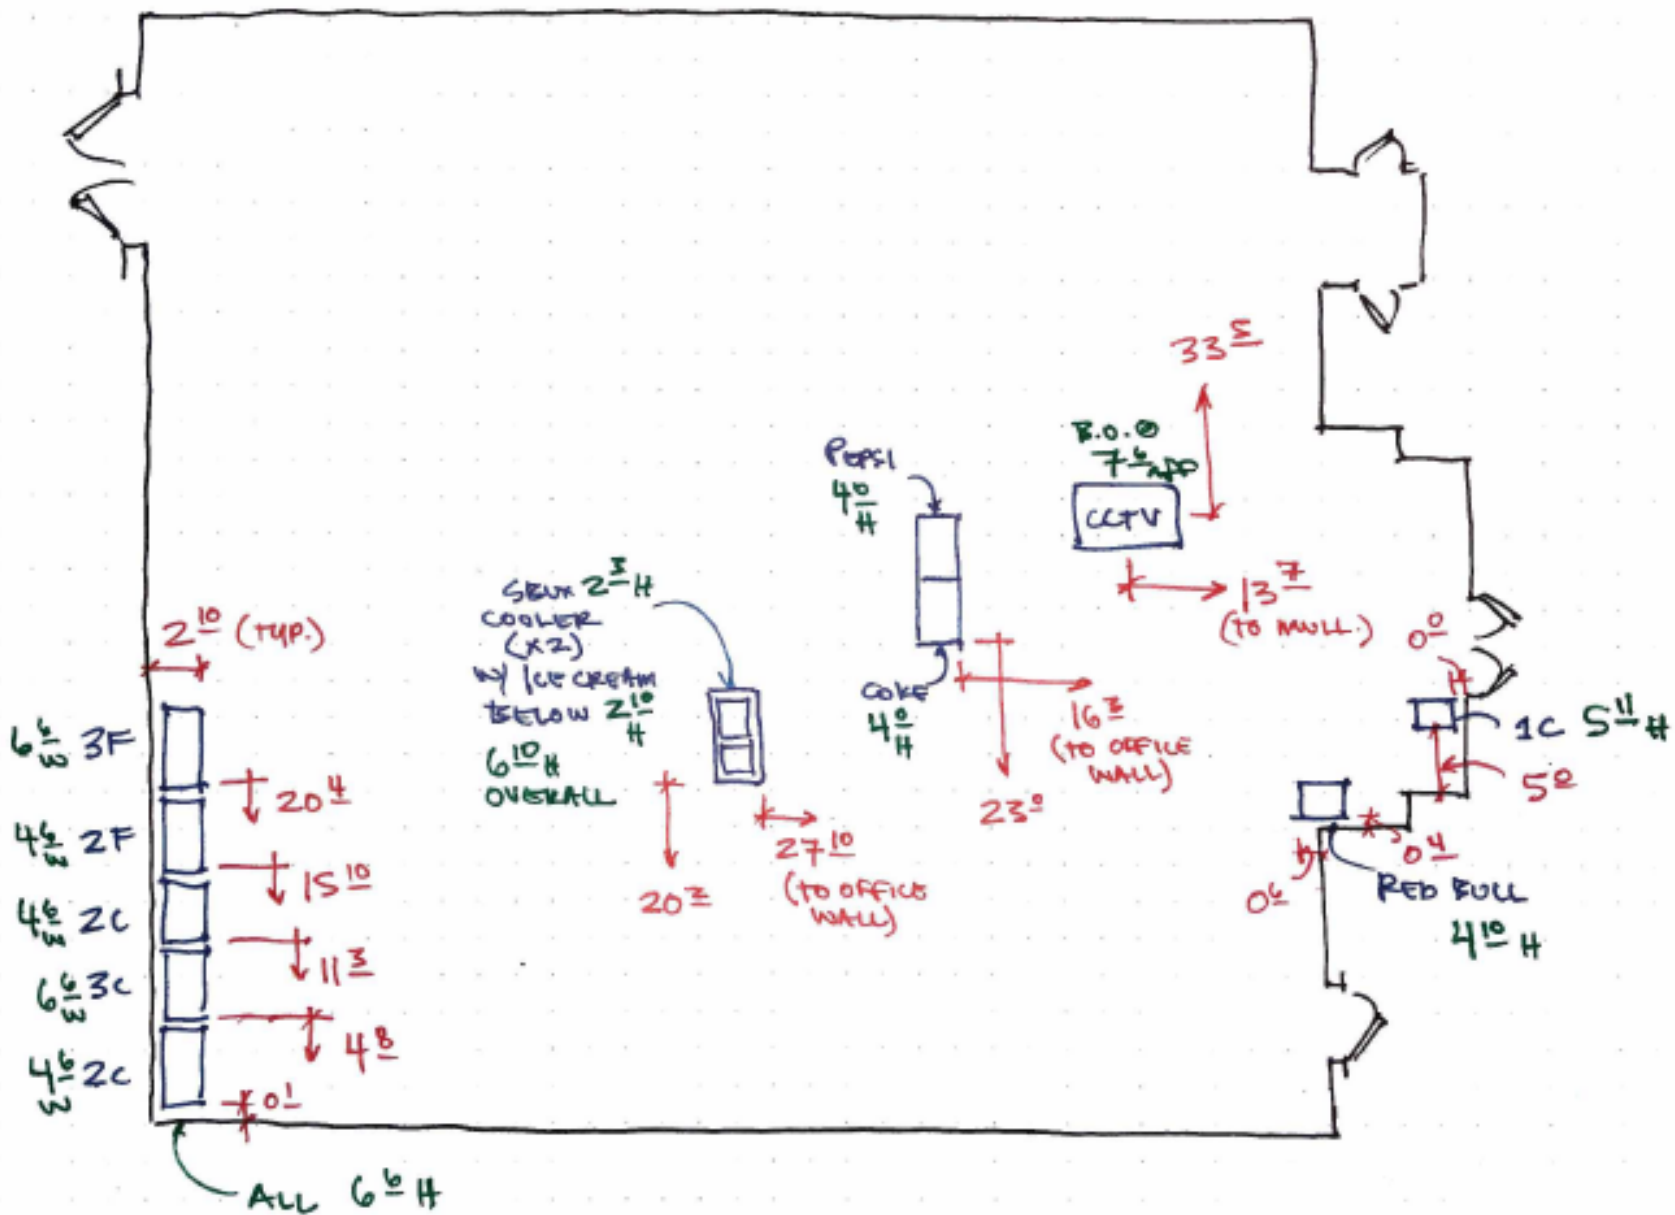 33 5
B.O. @
7 6 AFF
CCTV
13 7
(TO MULL.)
PEPSI
4 0
H
COKE
4 0
H
16 3
(TO OFFICE
WALL)
23 0
SBUX 2 5 H
COOLER
(X2)
W/ ICE CREAM
BELOW 2 10
H
6 10 H
OVERALL
20 3
27 10
(TO OFFICE
WALL)
2 10 (TYP.)
6 6 W 3F
20 4
4 6 W 2F
15 10
4 6 W 2C
11 3
6 6 W 3C
4 8
4 6 W 2C
0 1
ALL 6 6 H
0 0
1C 5 11 H
5 0
0 4
0 6
RED BULL
4 10 H